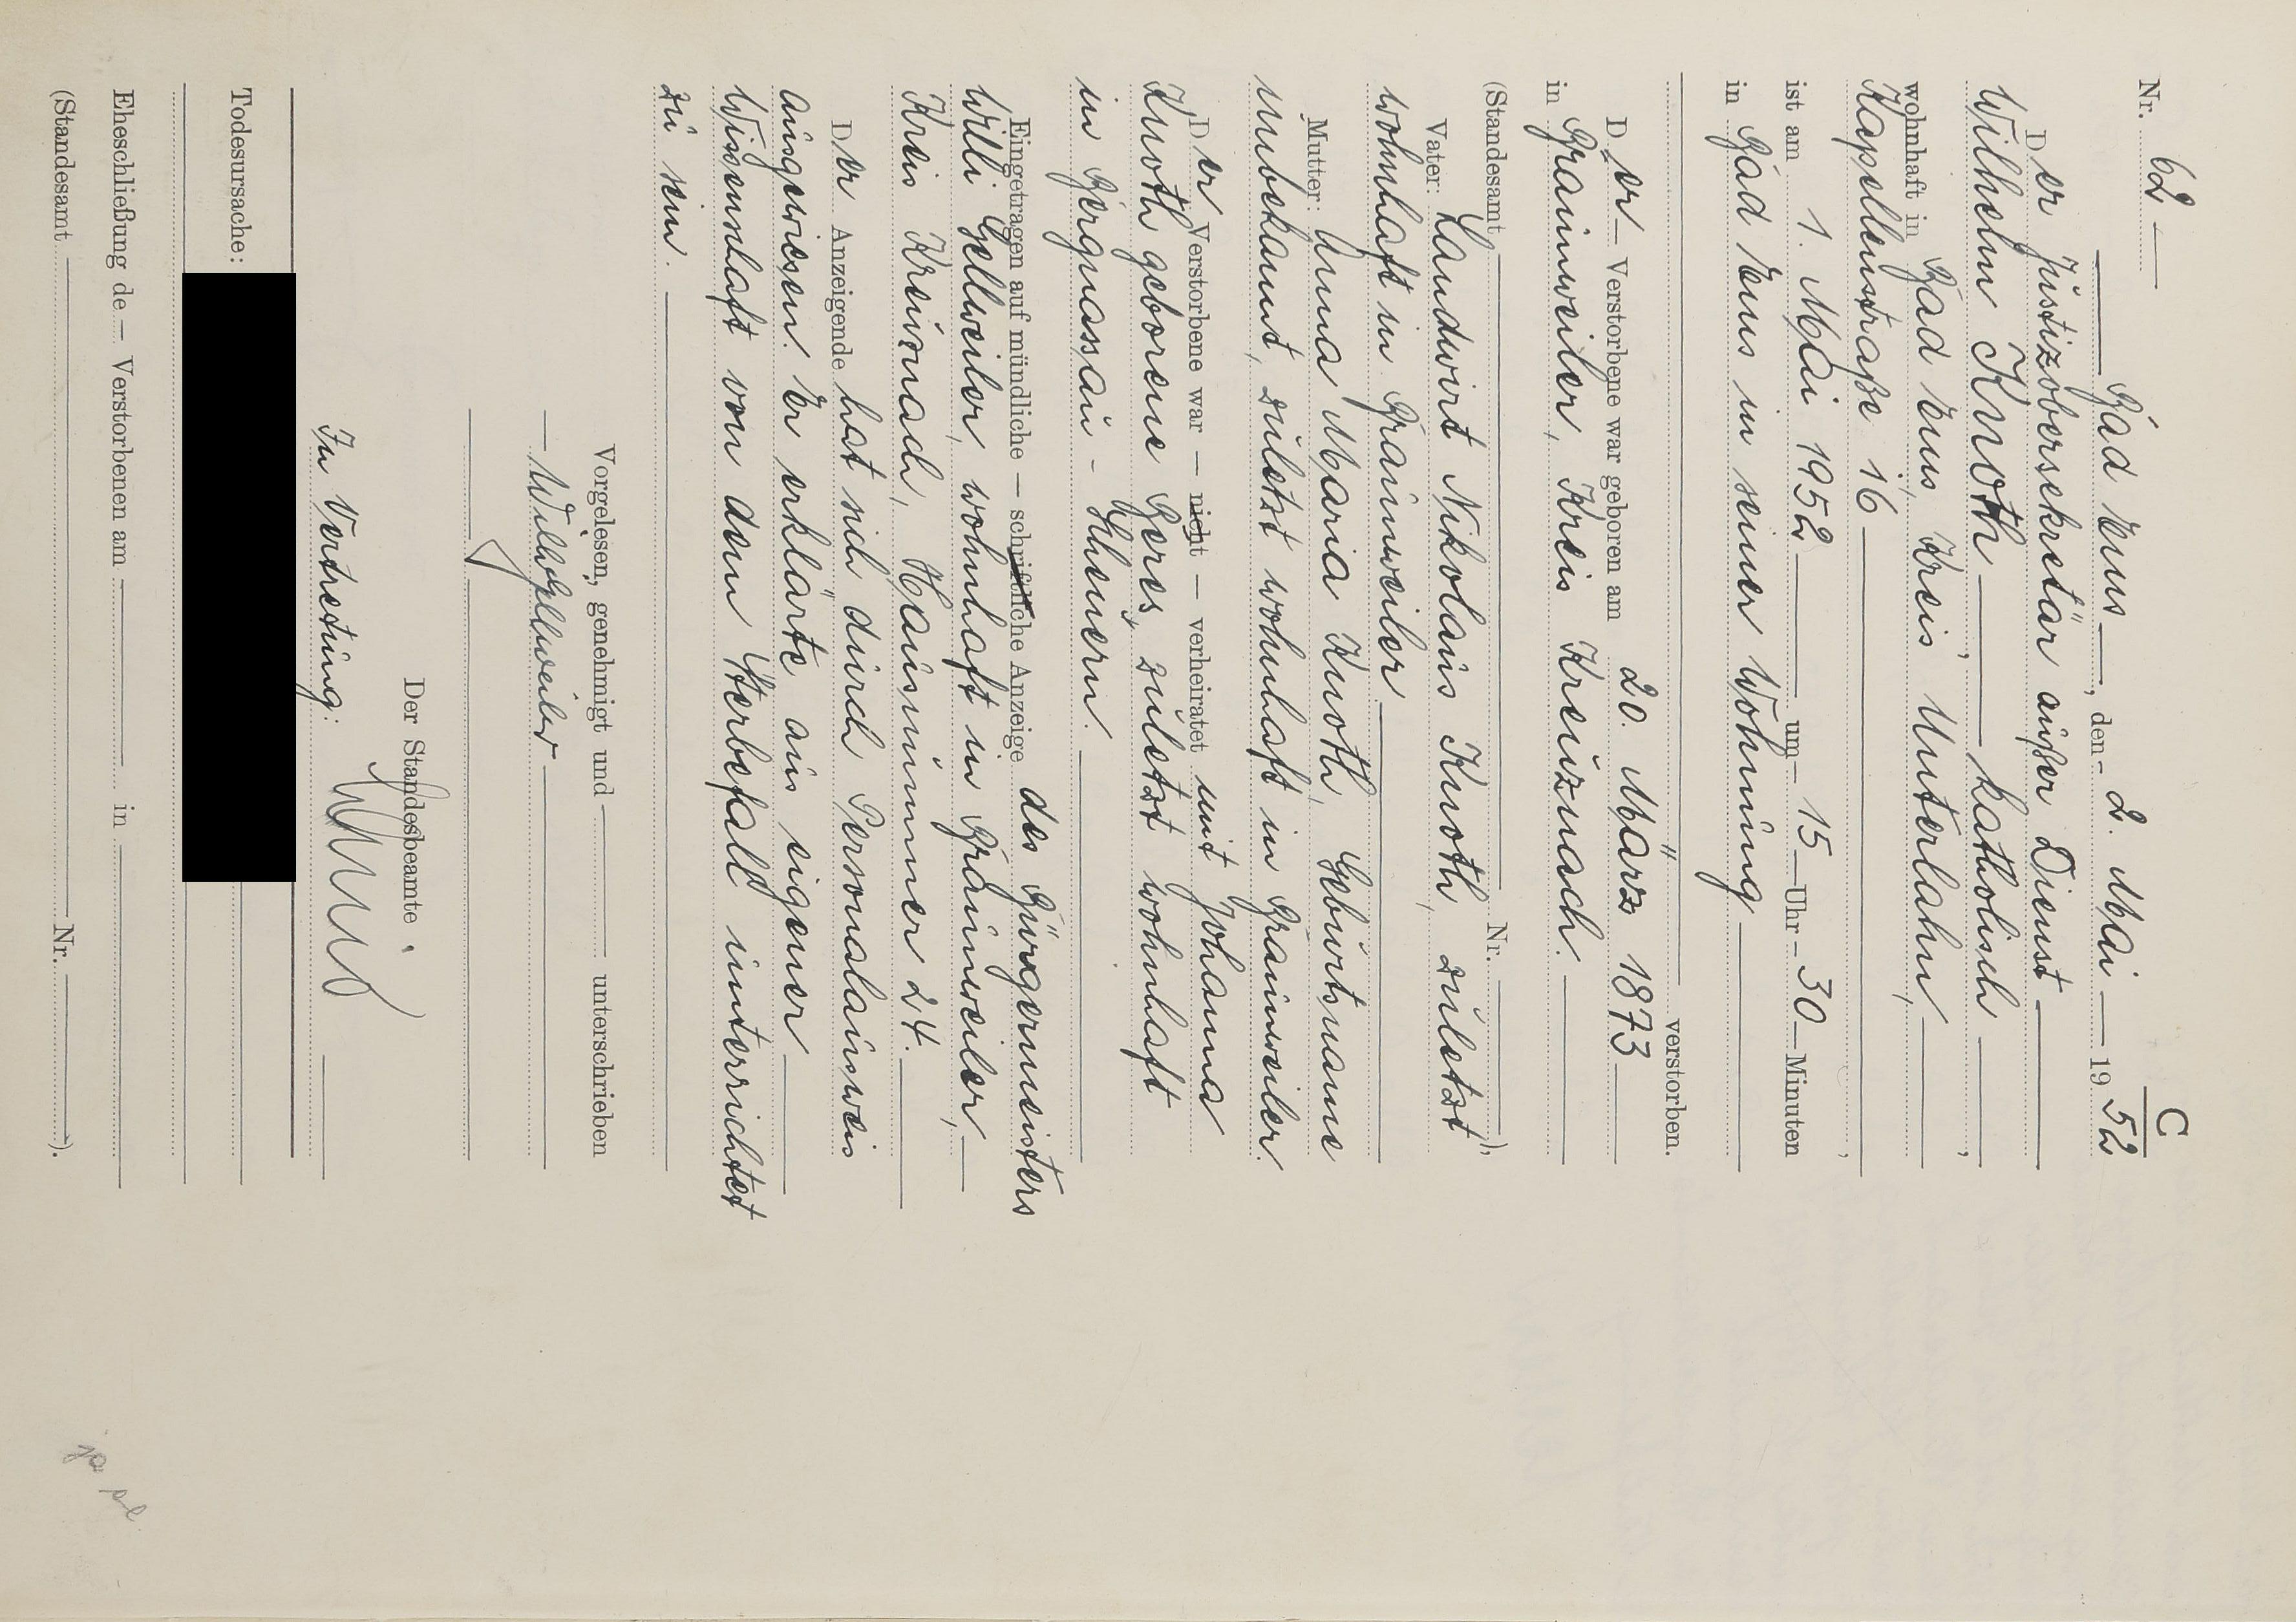 C
Nr. 62
Bad Ems, den 2. Mai 1952
Der Justizobersekretär außer Dienst
Wilhelm Knoth katholisch,
wohnhaft in Bad Ems, Kreis Unterlahn,
Kapellenstraße 16,
ist am 1. Mai 1952 um 15 Uhr 30 Minuten
in Bad Ems in seiner Wohnung
verstorben.
Der Verstorbene war geboren am 20. März 1873
in Braunweiler, Kreis Kreuznach.
(Standesamt Nr. ),
Vater: Landwirt Nikolaus Knoth, zuletzt
wohnhaft in Braunweiler.
Mutter: Anna Maria Knoth, Geburtsname
unbekannt, zuletzt wohnhaft in Braunweiler.
Der Verstorbene war — nicht — verheiratet mit Johanna
Knoth geborene Beres, zuletzt wohnhaft
in Bergnassau - Scheuern.
Eingetragen auf mündliche — schriftliche Anzeige des Bürgermeisters
Willi Gellweiler, wohnhaft in Braunweiler,
Kreis Kreuznach, Hausnummer 24.
Der Anzeigende hat sich durch Personalausweis
ausgewiesen. Er erklärte aus eigener
Wissenschaft von dem Sterbefall unterrichtet
zu sein.
Vorgelesen, genehmigt und unterschrieben
Willi Gellweiler
Der Standesbeamte
In Vertretung:
Todesursache:
Eheschließung de — Verstorbenen am in
(Standesamt Nr. ).